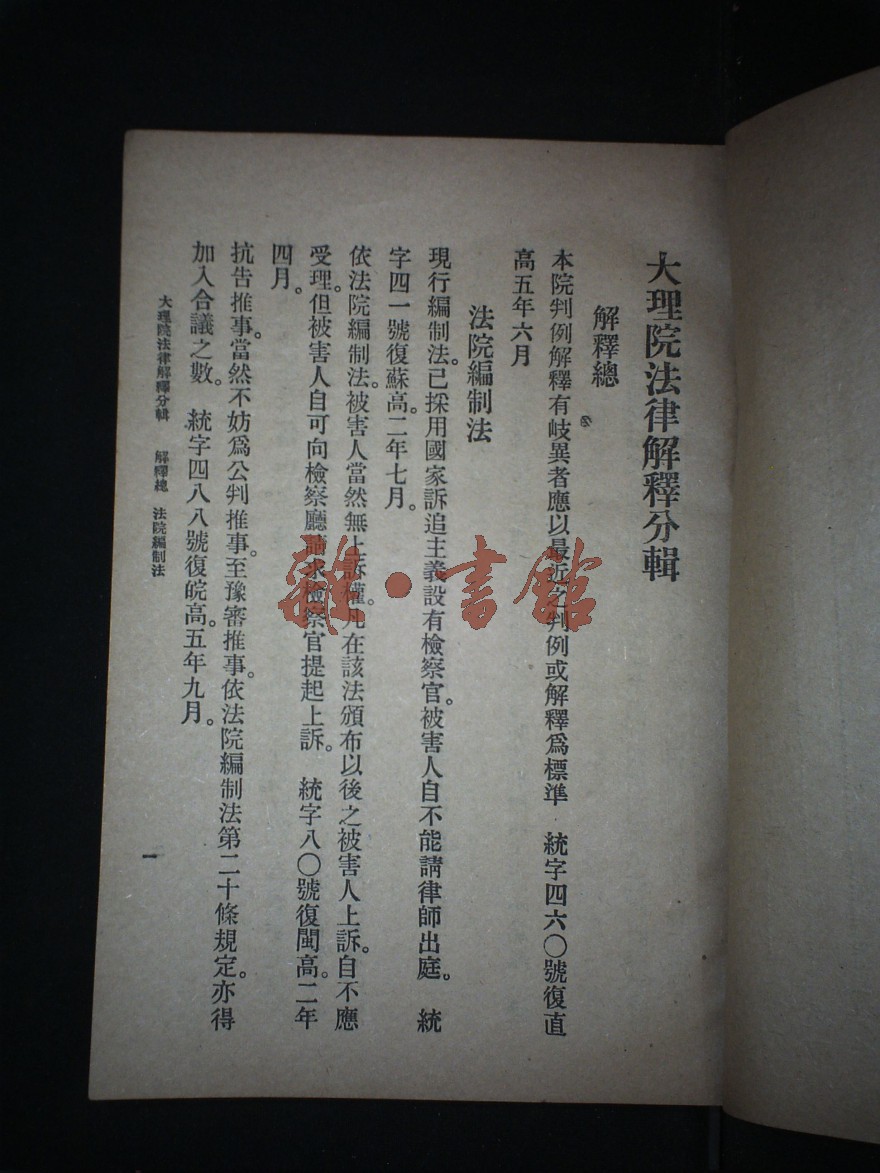 大理院法律解釋分輯
解釋總
本院判例解釋有歧異者應以最近之判例或解釋爲標準 統字四六〇號復直
高五年六月
法院編制法
現行編制法。已採用國家訴追主義設有檢察官。被害人自不能請律師出庭。 統
字四一號復蘇高。二年七月。
依法院編制法。被害人當然無上訴權。凡在該法頒布以後之被害人上訴。自不應
受理。但被害人自可向檢察廳請求檢察官提起上訴。 統字八〇號復閩高。二年
四月。
抗告推事。當然不妨爲公判推事。至豫審推事。依法院編制法第二十條規定。亦得
加入合議之數。 統字四八八號復皖高。五年九月。
大理院法律解釋分輯 解釋總 法院編制法
一
雜·書館